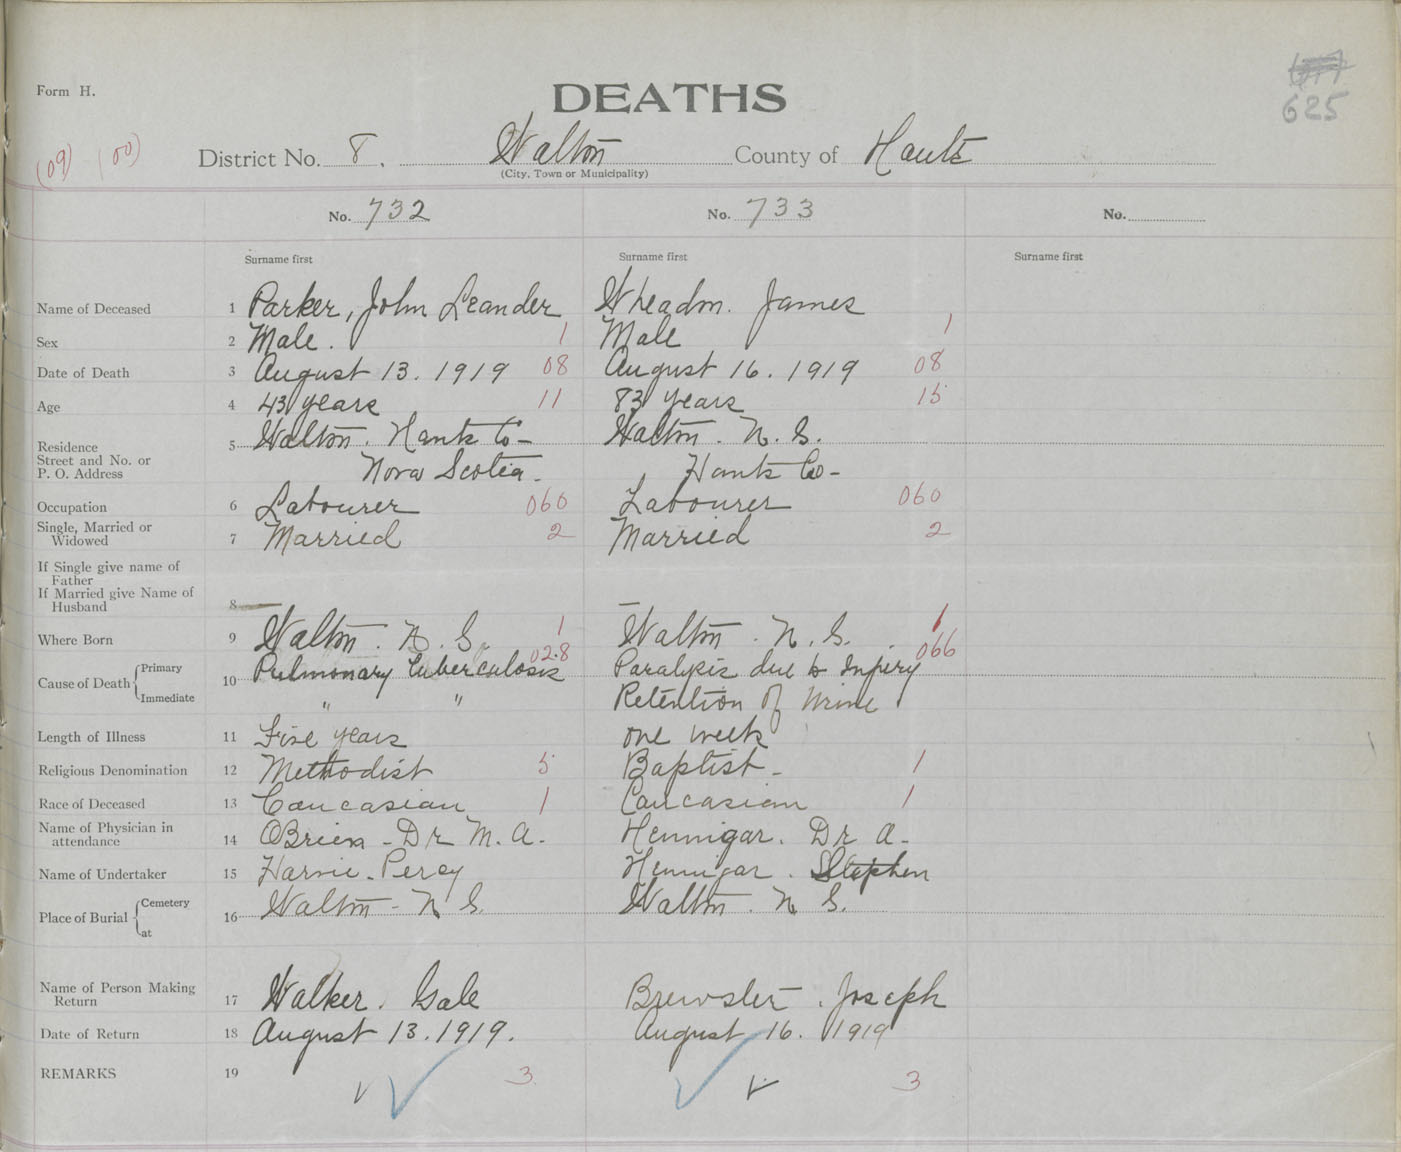 Form H.
DEATHS
625
(09) (00)
District No. 8. Walton County of Hants
(City, Town or Municipality)
No. 732 No. 733 No.
Surname first Surname first Surname first
Name of Deceased 1 Parker, John Leander Wheadon. James
Sex 2 Male. 1 Male 1
Date of Death 3 August 13. 1919 08 August 16. 1919 08
Age 4 43 years 11 83 years 15
Residence 5 Walton. Hants Co- Walton. N. S.
Street and No. or
P. O. Address Nova Scotia. Hants Co-
Occupation 6 Labourer 060 Labourer 060
Single, Married or
Widowed 7 Married 2 Married 2
If Single give name of
Father
If Married give Name of
Husband 8 — —
Where Born 9 Walton. N. S. 1 Walton. N. S. 1
Cause of Death Primary 10 Pulmonary Tuberculosis 028 Paralysis due to Injury 066
Immediate " " Retention of Urine
Length of Illness 11 Five years one week
Religious Denomination 12 Methodist 5 Baptist - 1
Race of Deceased 13 Caucasian 1 Caucasian 1
Name of Physician in
attendance 14 OBrien - Dr M. A. Hennigar. Dr A-
Name of Undertaker 15 Harvie - Percy Hennigar. Stephen
Place of Burial Cemetery 16 Walton - N S. Walton. N S.
at
Name of Person Making
Return 17 Walker. Gale Brewster. Joseph
Date of Return 18 August 13. 1919. August 16. 1919
REMARKS 19 3 3